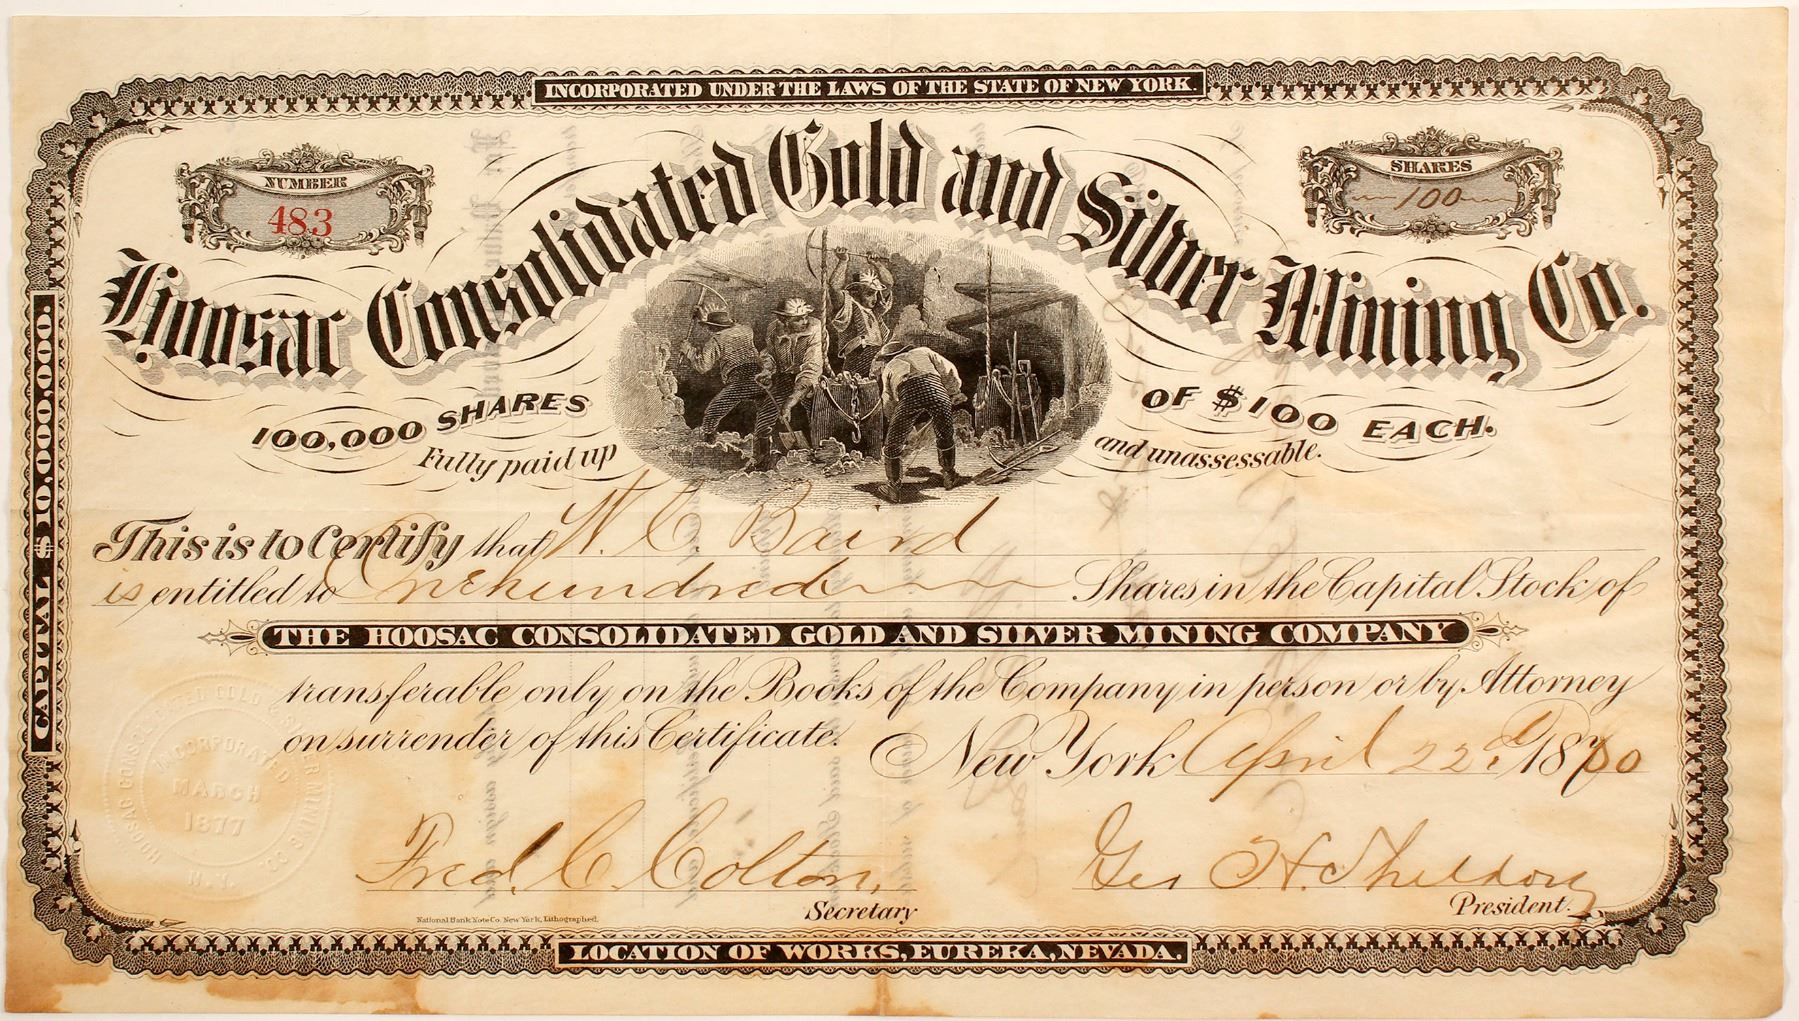 INCORPORATED UNDER THE LAWS OF THE STATE OF NEW YORK.
NUMBER
483
SHARES
100
Hoosac Consolidated Gold and Silver Mining Co.
100,000 SHARES OF $100 EACH.
Fully paid up and unassessable.
CAPITAL $10,000,000.
This is to Certify that W. C. Baird
is entitled to One hundred Shares in the Capital Stock of
THE HOOSAC CONSOLIDATED GOLD AND SILVER MINING COMPANY
transferable only on the Books of the Company in person or by Attorney
on surrender of this Certificate. New York April 22d 1880
HOOSAC CONSOLIDATED GOLD & SILVER MINING CO.
INCORPORATED
MARCH
1877
N.Y.
Fred. C. Colton, Geo H. Sheldon
Secretary President.
National Bank Note Co. New York, Lithographed.
LOCATION OF WORKS, EUREKA, NEVADA.